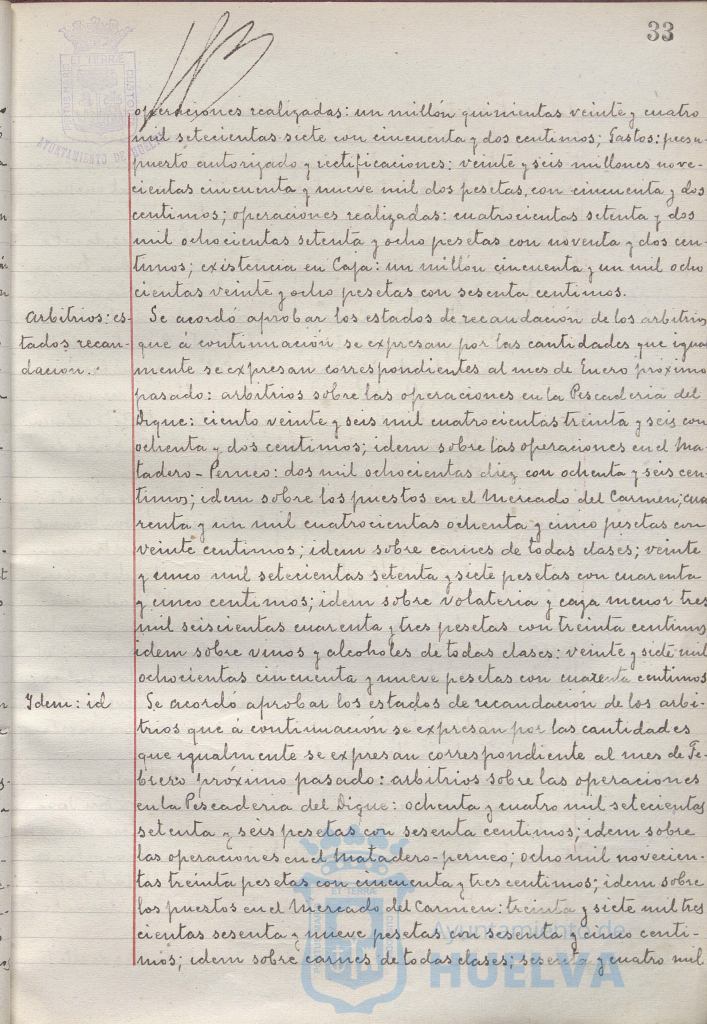 33
ET TERRÆ
AYUNTAMIENTO DE HUELVA
operaciones realizadas: un millón quinientas veinte y cuatro
mil setecientas siete con cincuenta y dos centimos; Gastos: presu-
puesto autorizado y rectificaciones: veinte y seis millones nove-
cientas cincuenta y nueve mil dos pesetas, con cincuenta y dos
centimos; operaciones realizadas: cuatrocientas setenta y dos
mil ochocientas setenta y ocho pesetas con noventa y dos cen-
timos; existencia en Caja: un millón cincuenta y un mil ocho
cientas veinte y ocho pesetas con sesenta centimos.
Arbitrios: es-
tados recau-
dacion.
Se acordó aprobar los estados de recaudación de los arbitrios
que á continuación se expresan por las cantidades que igual
mente se expresan correspondientes al mes de Enero próximo
pasado: arbitrios sobre las operaciones en la Pescaderia del
Dique: ciento veinte y seis mil cuatrocientas treinta y seis con
ochenta y dos centimos; idem sobre las operaciones en el Ma-
tadero-Perneo: dos mil ochocientas diez con ochenta y seis cen-
timos; idem sobre los puestos en el Mercado del Carmen; cua
renta y un mil cuatrocientas ochenta y cinco pesetas con
veinte centimos; idem sobre carnes de todas clases; veinte
y cinco mil setecientas setenta y siete pesetas con cuarenta
y cinco centimos; idem sobre volateria y caza menor tres
mil seiscientas cuarenta y tres pesetas con treinta centimos
idem sobre vinos y alcoholes de todas clases: veinte y siete mil
ochocientas cincuenta y nueve pesetas con cuarenta centimos
Ydem: id
Se acordó aprobar los estados de recaudación de los arbi-
trios que á continuación se expresan por las cantidades
que igualmente se expresan correspondiente al mes de Fe-
brero próximo pasado: arbitrios sobre las operaciones
en la Pescaderia del Dique: ochenta y cuatro mil setecientas
setenta y seis pesetas con sesenta centimos; idem sobre
las operaciones en el Matadero-perneo; ocho mil novecien-
tas treinta pesetas con cincuenta y tres centimos; idem sobre
los puestos en el Mercado del Carmen: treinta y siete mil tres
cientas sesenta y nueve pesetas con sesenta y cinco centi-
mos; idem sobre carnes de todas clases; sesenta y cuatro mil
ET TERRÆ
Ayuntamiento de
HUELVA